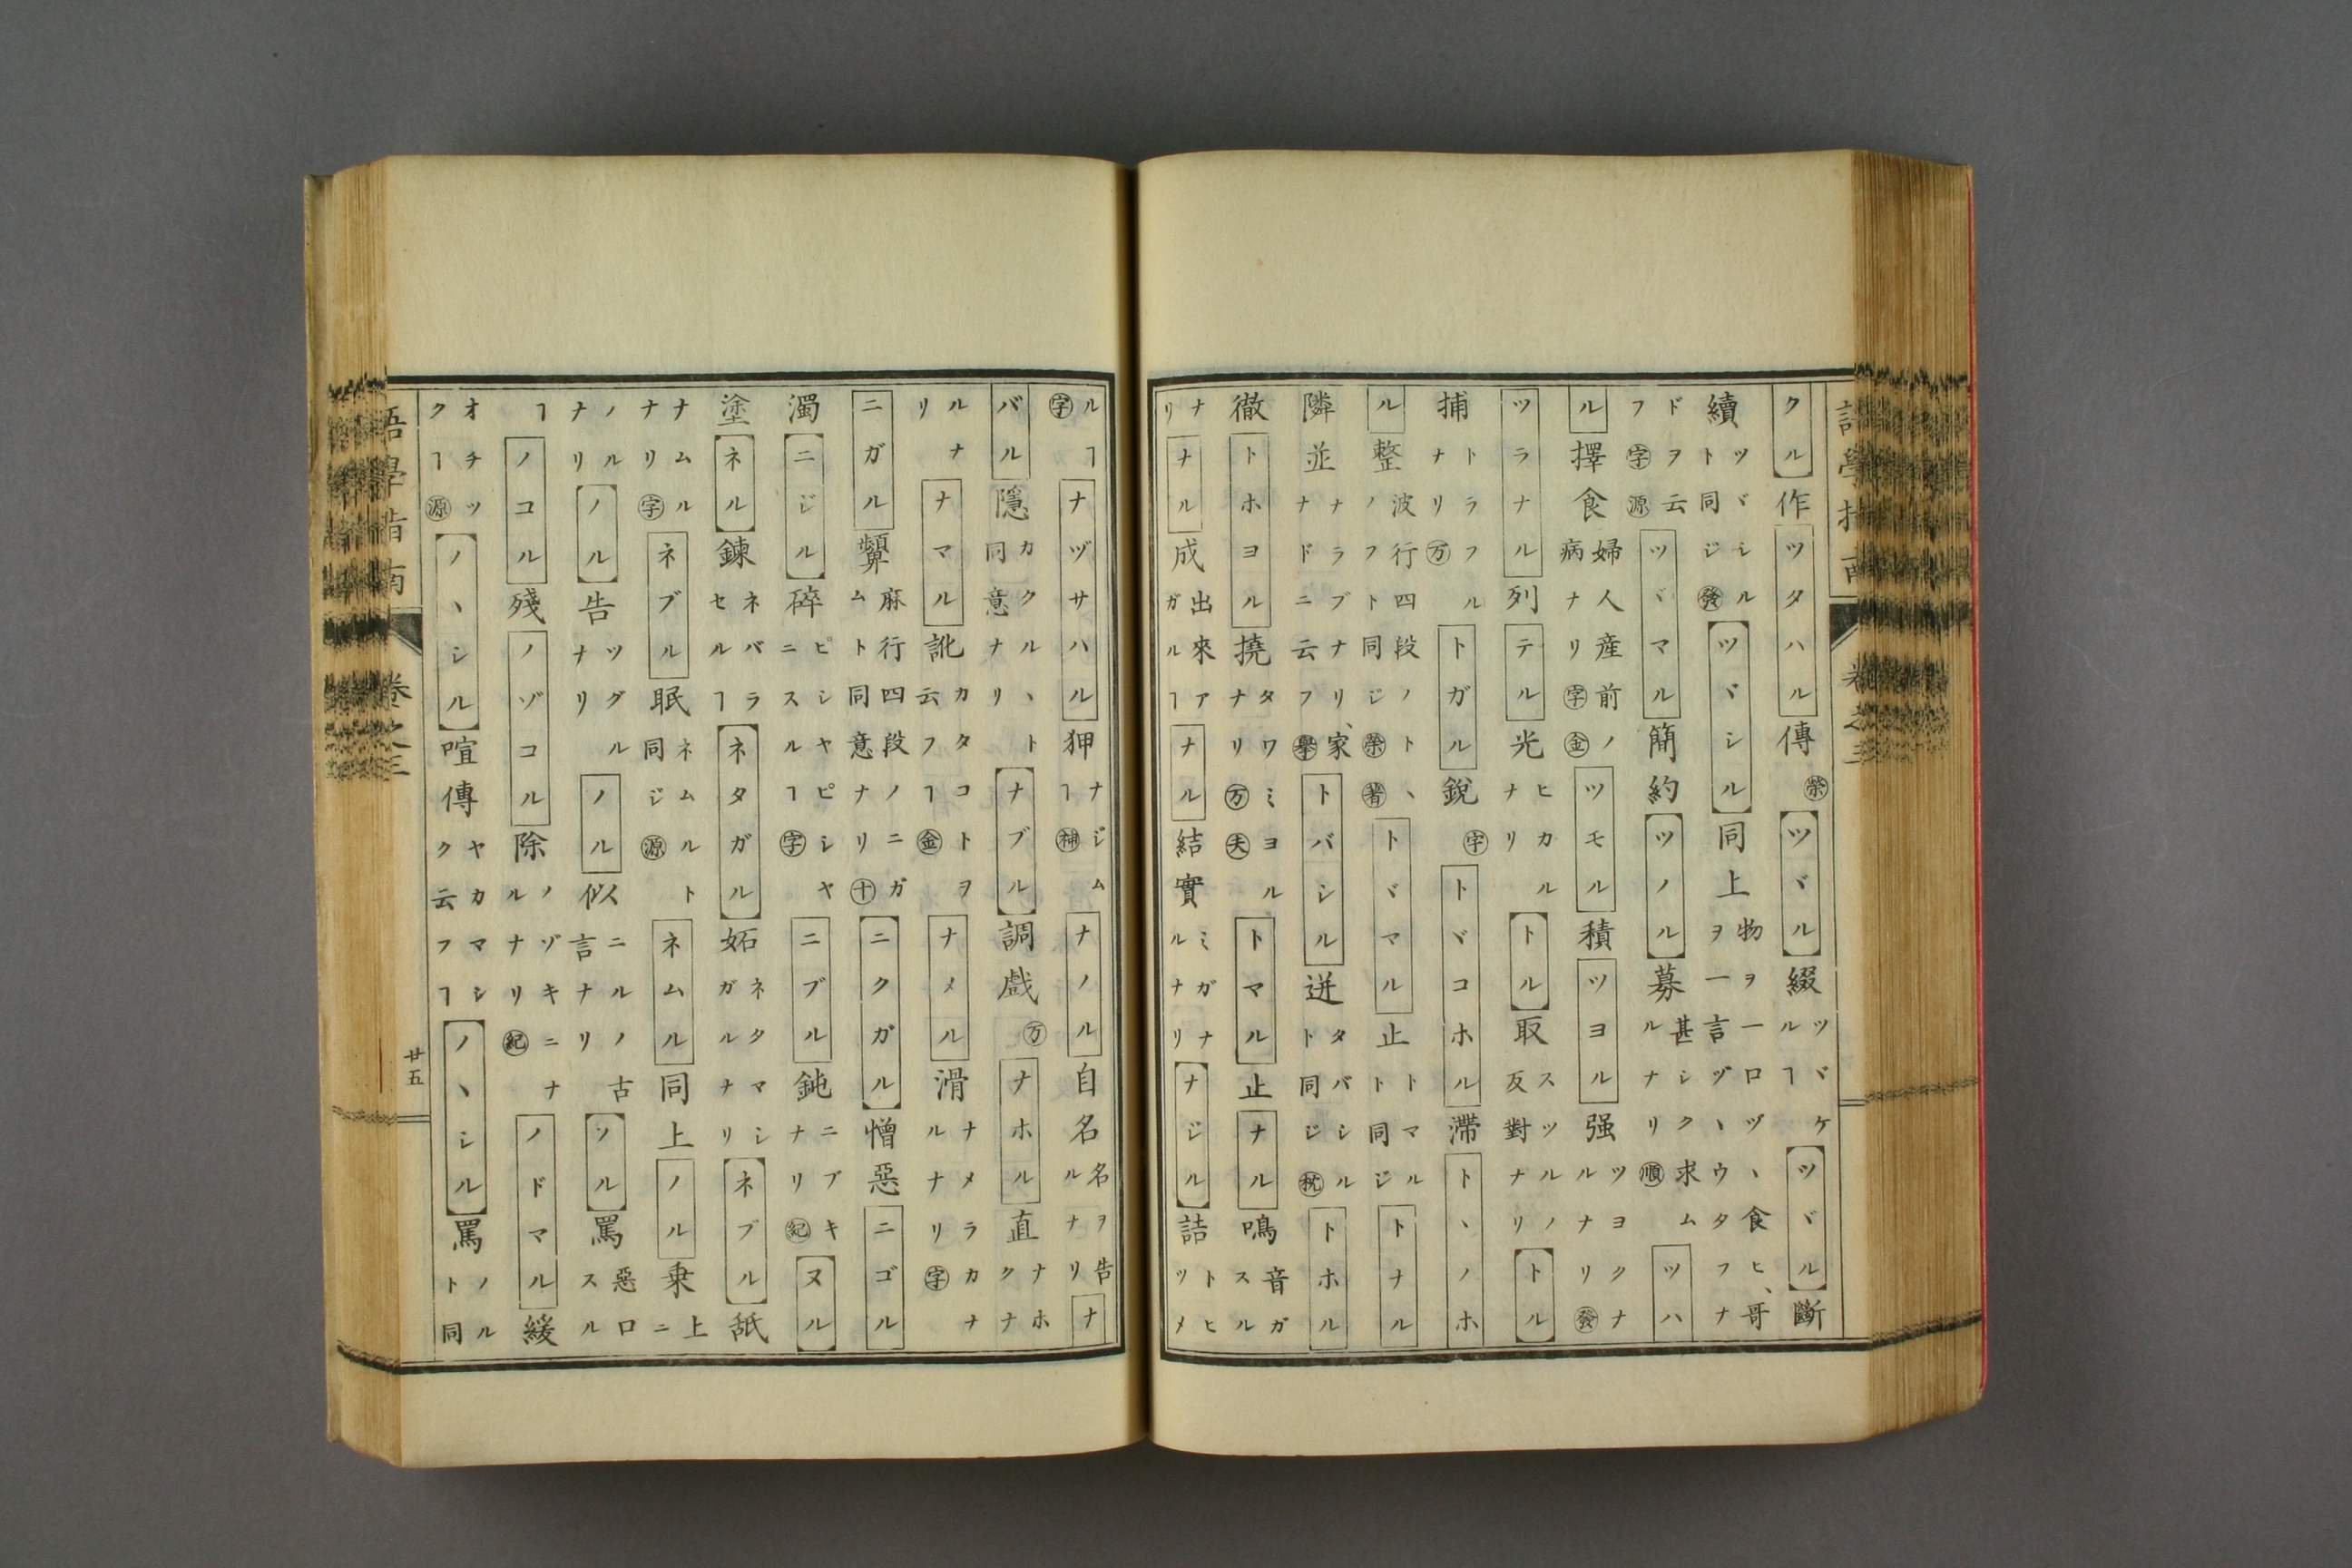 語學指南 卷之三
クル作ツタハル傳榮ツヾル綴ツヾケルヿツヾル斷
續ツヾシルト同ジ發ツヾシル同上物ヲ一口ヅヽ食ヒ、哥ヲ一言ヅヽウタフナ
ドヲ云フ字源ツヾマル簡約ツノル募甚シク求ムルナリ順ツハ
ル擇食婦人産前ノ病ナリ字金ツモル積ツヨル强ツヨクナルナリ發
ツラナル列テル光ヒカルナリトル取スツルノ反對ナリトル
捕トラフルナリ万トガル銳字トヾコホル滯トヽノホ
ル整波行四段ノトヽノフト同ジ榮著トヾマル止トマルト同ジトナル
隣並ナラブナリ、家ナドニ云フ擧トバシル迸タバシルト同ジ枕トホル
徹トホヨル撓タワミヨルナリ万夫トマル止ナル鳴音ガスル
ナリナル成出來アガルヿナル結實ミガナルナリナジル詰トヒツメ
ルヿ字ナヅサハル狎ナジムヿ神ナノル自名名ヲ告ルナリナ
バル隱カクルヽト同意ナリナブル調戲万ナホル直ナホクナ
ルナリナマル訛カタコトヲ云フヿ金ナメル滑ナメラカナルナリ字
ニガル顰麻行四段ノニガムト同意ナリ十ニクガル憎惡ニゴル
濁ニジル碎ピシヤピシヤニスルヿ字ニブル鈍ニブキナリ紀ヌル
塗ネル鍊ネバラセルヿネタガル妬ネタマシガルナリネブル舐
ナムルナリ字ネブル眠ネムルト同ジ源ネムル同上ノル乗上ニ
ノルナリノル告ツグルナリノル似ニルノ古言ナリノル罵惡口スル
ヿノコル殘ノゾコル除ノゾキニナルナリ紀ノドマル緩
オチツクヿ源ノヽシル喧傳ヤカマシク云フヿノヽシル罵ノルト同
語學指南 卷之三 廿五